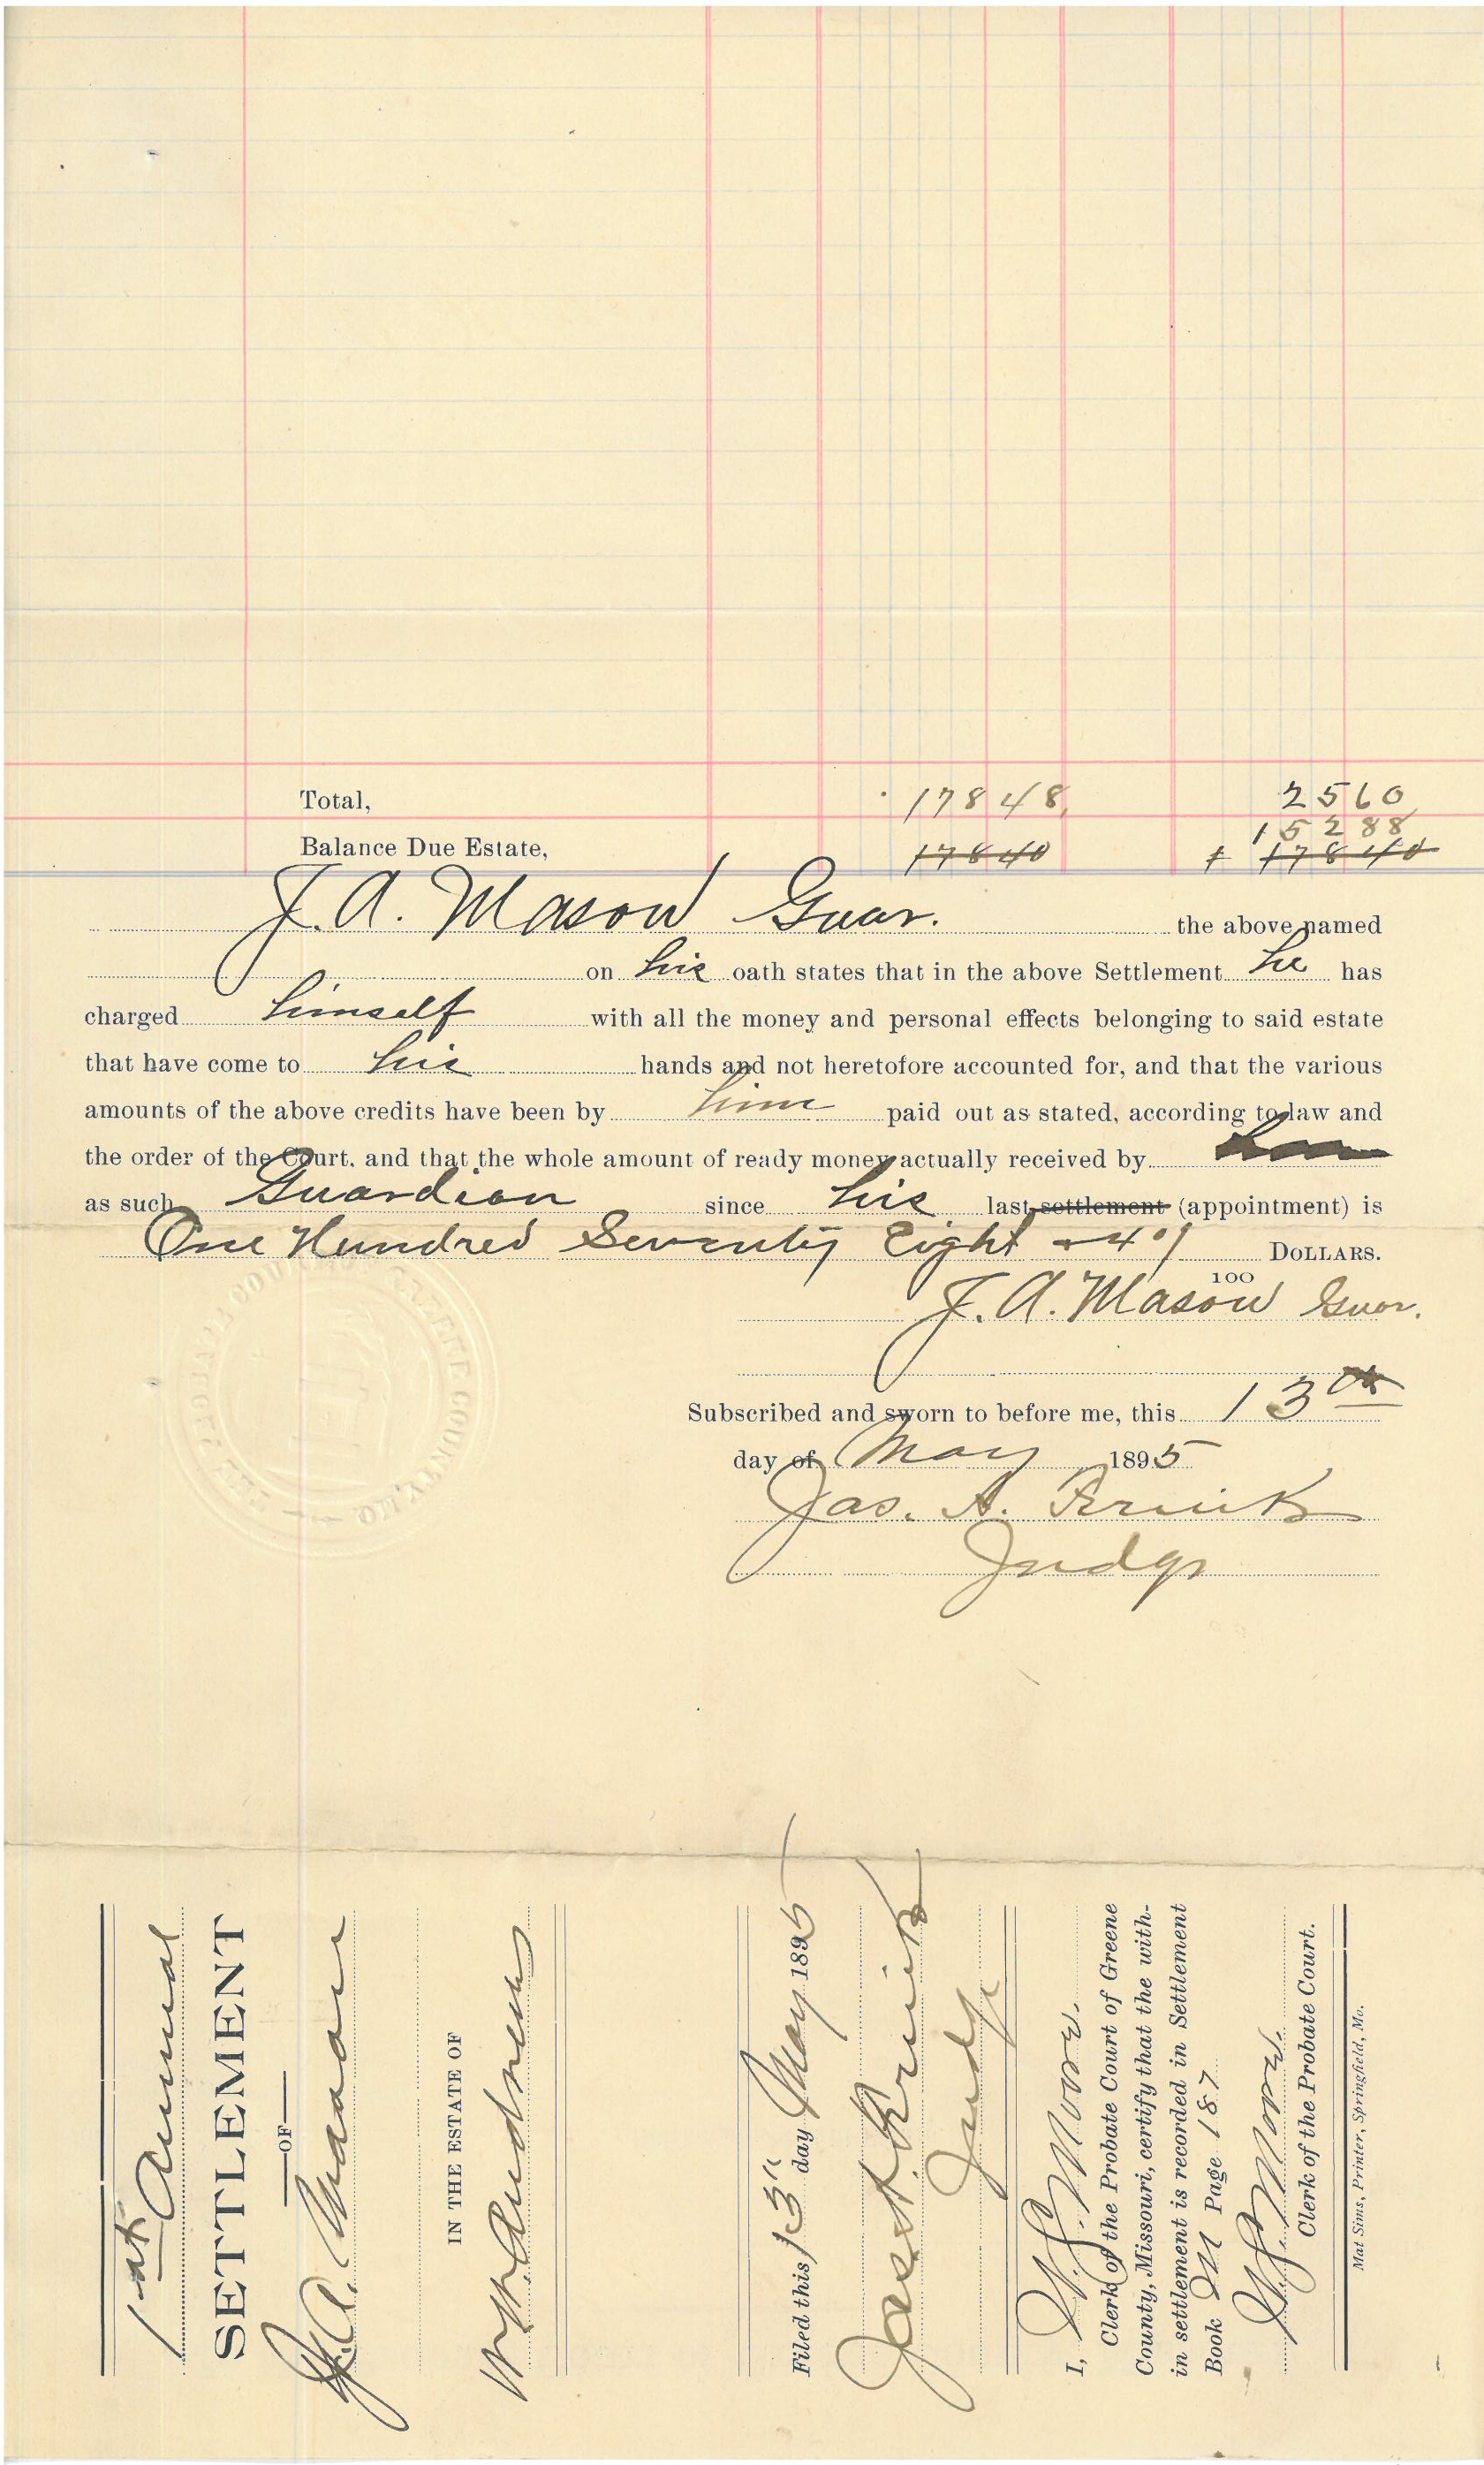 Total, 178 48 25 60
152 88
Balance Due Estate, 178 40 $ 178 40
J. A. Mason Guar. the above named
on his oath states that in the above Settlement he has
charged himself with all the money and personal effects belonging to said estate
that have come to his hands and not heretofore accounted for, and that the various
amounts of the above credits have been by him paid out as stated, according to law and
the order of the Court, and that the whole amount of ready money actually received by
as such Guardian since his last settlement (appointment) is
One Hundred Seventy Eight & 4 / DOLLARS.
100
J. A. Mason Guar.
Subscribed and sworn to before me, this 13th
day of May 1895
Jas. A.
Judge
THE PROBATE COURT GREENE COUNTY, MO.
1st Annual
SETTLEMENT
OF
J. A. Mason
IN THE ESTATE OF
Andrews
Filed this 13" day May 1895
Jas. A.
Judge
I, W. S. Moore.
Clerk of the Probate Court of Greene
County, Missouri, certify that the with-
in settlement is recorded in Settlement
Book M Page 187
W. S. Moore.
Clerk of the Probate Court.
Mat Sims, Printer, Springfield, Mo.